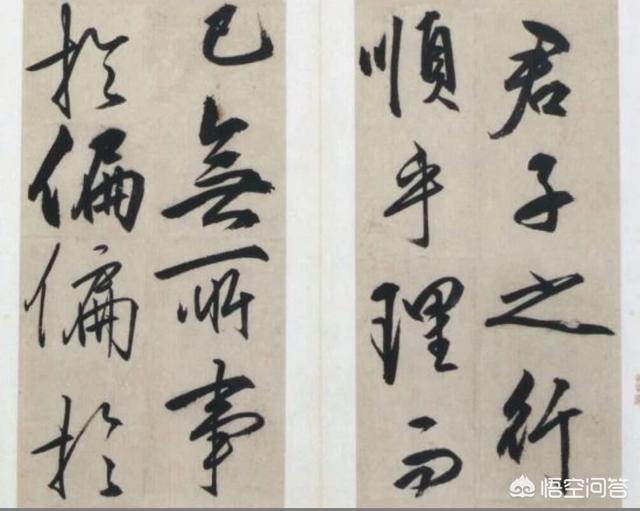 君子之行
順乎理而
已無所事
於偏偏於
悟空问答